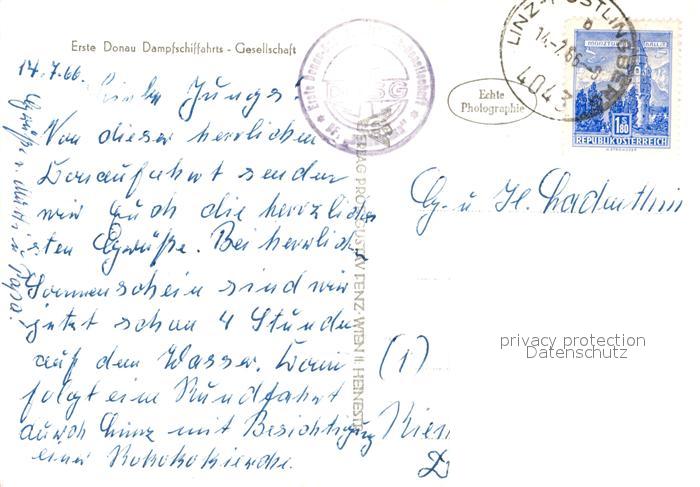 Erste Donau Dampfschiffahrts - Gesellschaft
14.7.66.
Liebe Jungs!
Von dieser herrlichen
Donaufahrt senden
wir Euch die herzlich-
sten Grüße. Bei herrlich
Sonnenschein sind wir
jetzt schon 4 Stunden
auf dem Wasser. Dann
folgt eine Rundfahrt
durch Linz mit Besichtigung
einer Rokokokirche.
Grüße v. Mutti u. Papa!
DDSG
VERLAG PROF. GUSTAV TENZ, WIEN II, HEINESTR.
Echte
Photographie
LINZ-PÖSTLINGBERG
14.-7.66
4043
1.80
REPUBLIK ÖSTERREICH
G. u. H.
(1)
privacy protection
Datenschutz